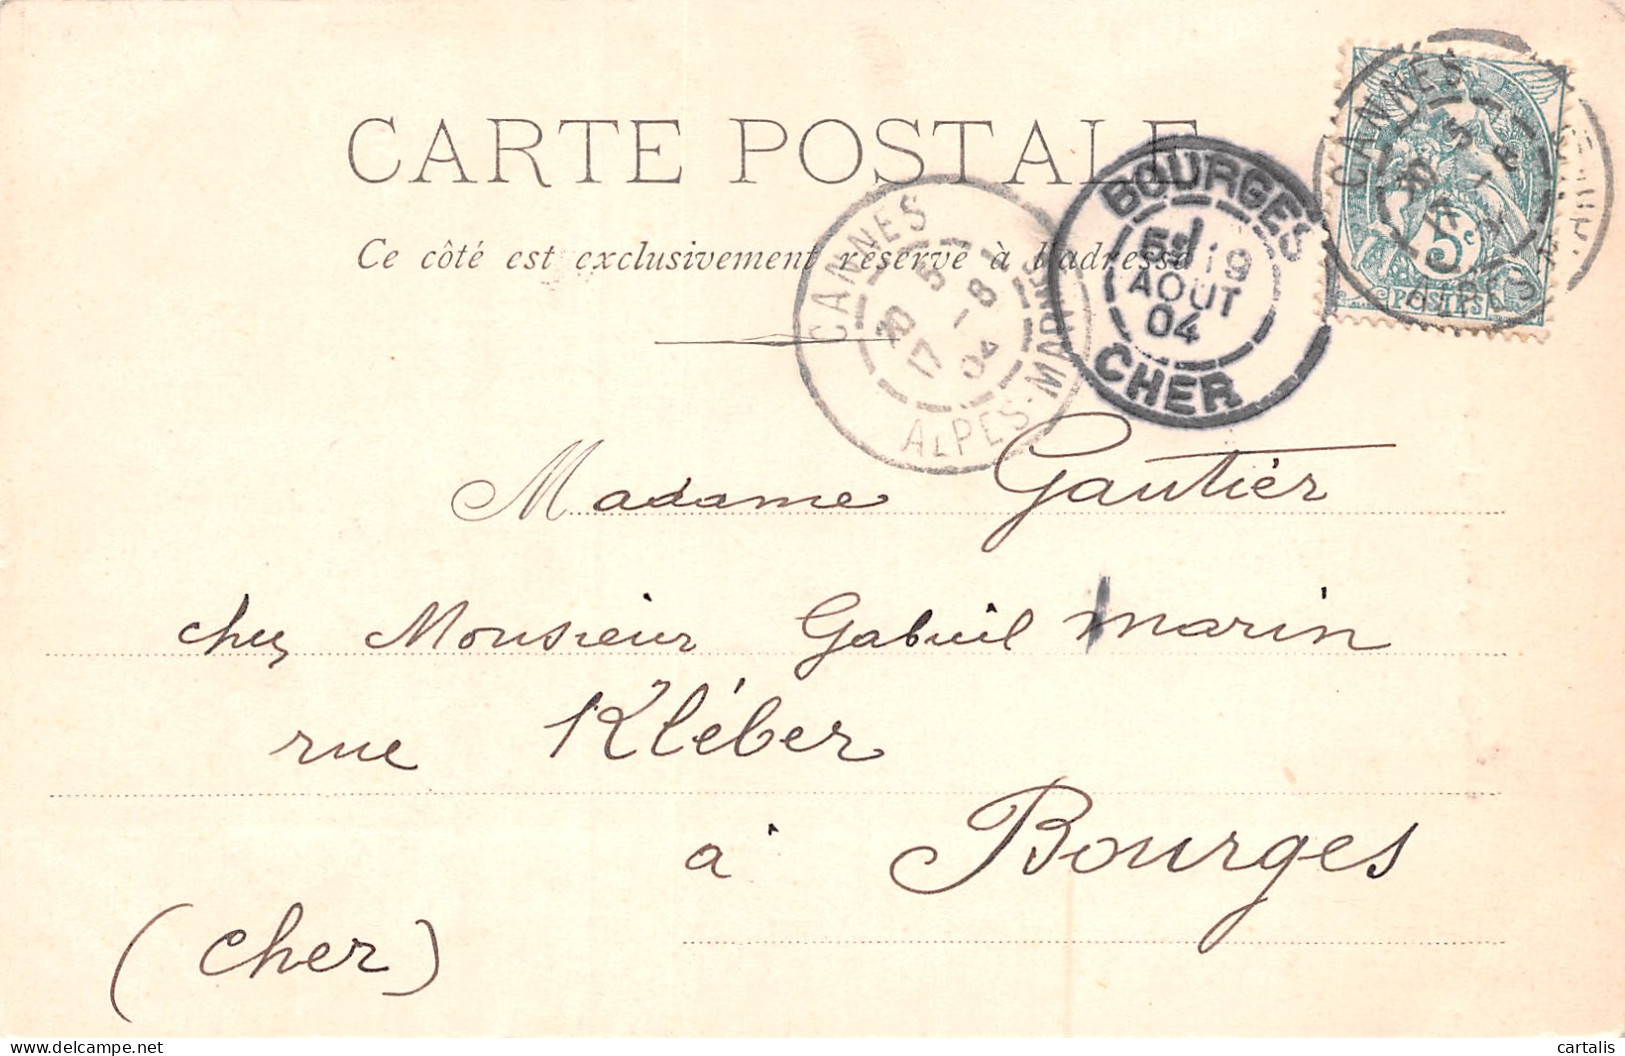 CARTE POSTALE
Ce côté est exclusivement réservé à l'adresse
CANNES
20 5
17 -8
04
ALPES-MARIT
BOURGES
5E 19
AOUT
04
CHER
CANNES
20 5
17 -8
ALPES-MARIT
5c
POSTES
Madame Gautier
chez Monsieur Gabriel Marin
rue Kléber
à Bourges
(Cher)
www.delcampe.net
cartalis